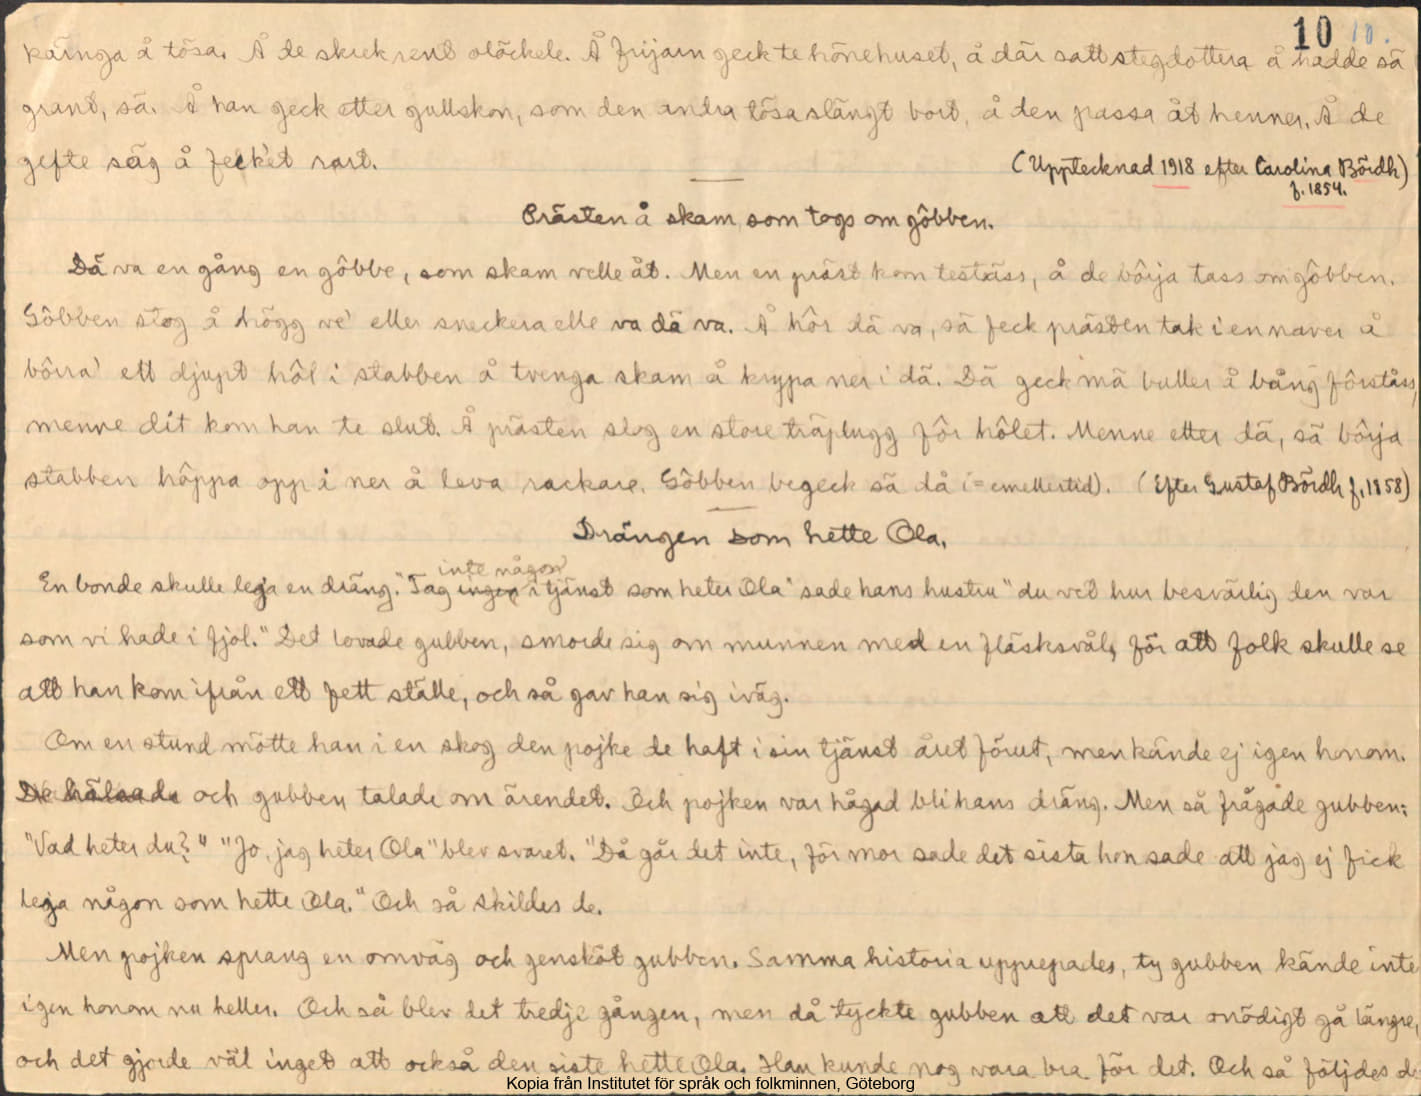 10 10.
käringa å tösa. Å de skrek rent oläckele. Å frijarn geck te hönehuset, å där satt stegdottera å hadde sä
grant, sä. Å han geck etter gullskon, som den andra tösa slängt bort, å den passa åt henner. Å de
gefte säg å feck'et rart.
(Upptecknad 1918 efter Carolina Bördh)
f. 1854.
Prästen å skam som togs om gôbben.
Dä va en gång en gôbbe, som skam velle åt. Men en präst kom testäss, å de bôrja tass om gôbben.
Gôbben stog å högg ve' eller sneckera elle va dä va. Å hôr dä va, sä feck prästen tak i en naver å
bôrra' ett djupt hôl i stabben å tvenga skam å krypa ner i dä. Dä geck mä buller å bång fôrståss,
menne dit kom han te slut. Å prästen slog en store träplugg fôr hôlet. Menne etter dä, sä bôrja
stabben hôppa opp i ner å leva rackare. Gôbben begeck sä då i = emellertid). (Efter Gustaf Bördh f. 1858)
Drängen som hette Ola.
inte någon
En bonde skulle leja en dräng. "Tag ingen i tjänst som heter Ola" sade hans hustru "du vet hur besvärlig den var
som vi hade i fjol." Det lovade gubben, smorde sig om munnen med en fläsksvål, för att folk skulle se
att han kom ifrån ett fett ställe, och så gav han sig iväg.
Om en stund mötte han i en skog den pojke de haft i sin tjänst året förut, men kände ej igen honom.
De hälsade och gubben talade om ärendet. Och pojken var hågad bli hans dräng. Men så frågade gubben:
"Vad heter du?" "Jo, jag heter Ola" blev svaret. "Då går det inte, för mor sade det sista hon sade att jag ej fick
leja någon som hette Ola." Och så skildes de.
Men pojken sprang en omväg och gensköt gubben. Samma historia upprepades, ty gubben kände inte
igen honom nu heller. Och så blev det tredje gången, men då tyckte gubben att det var onödigt gå längre,
och det gjorde väl inget att också den siste hette Ola. Han kunde nog vara bra för det. Och så följdes de
Kopia från Institutet för språk och folkminnen, Göteborg